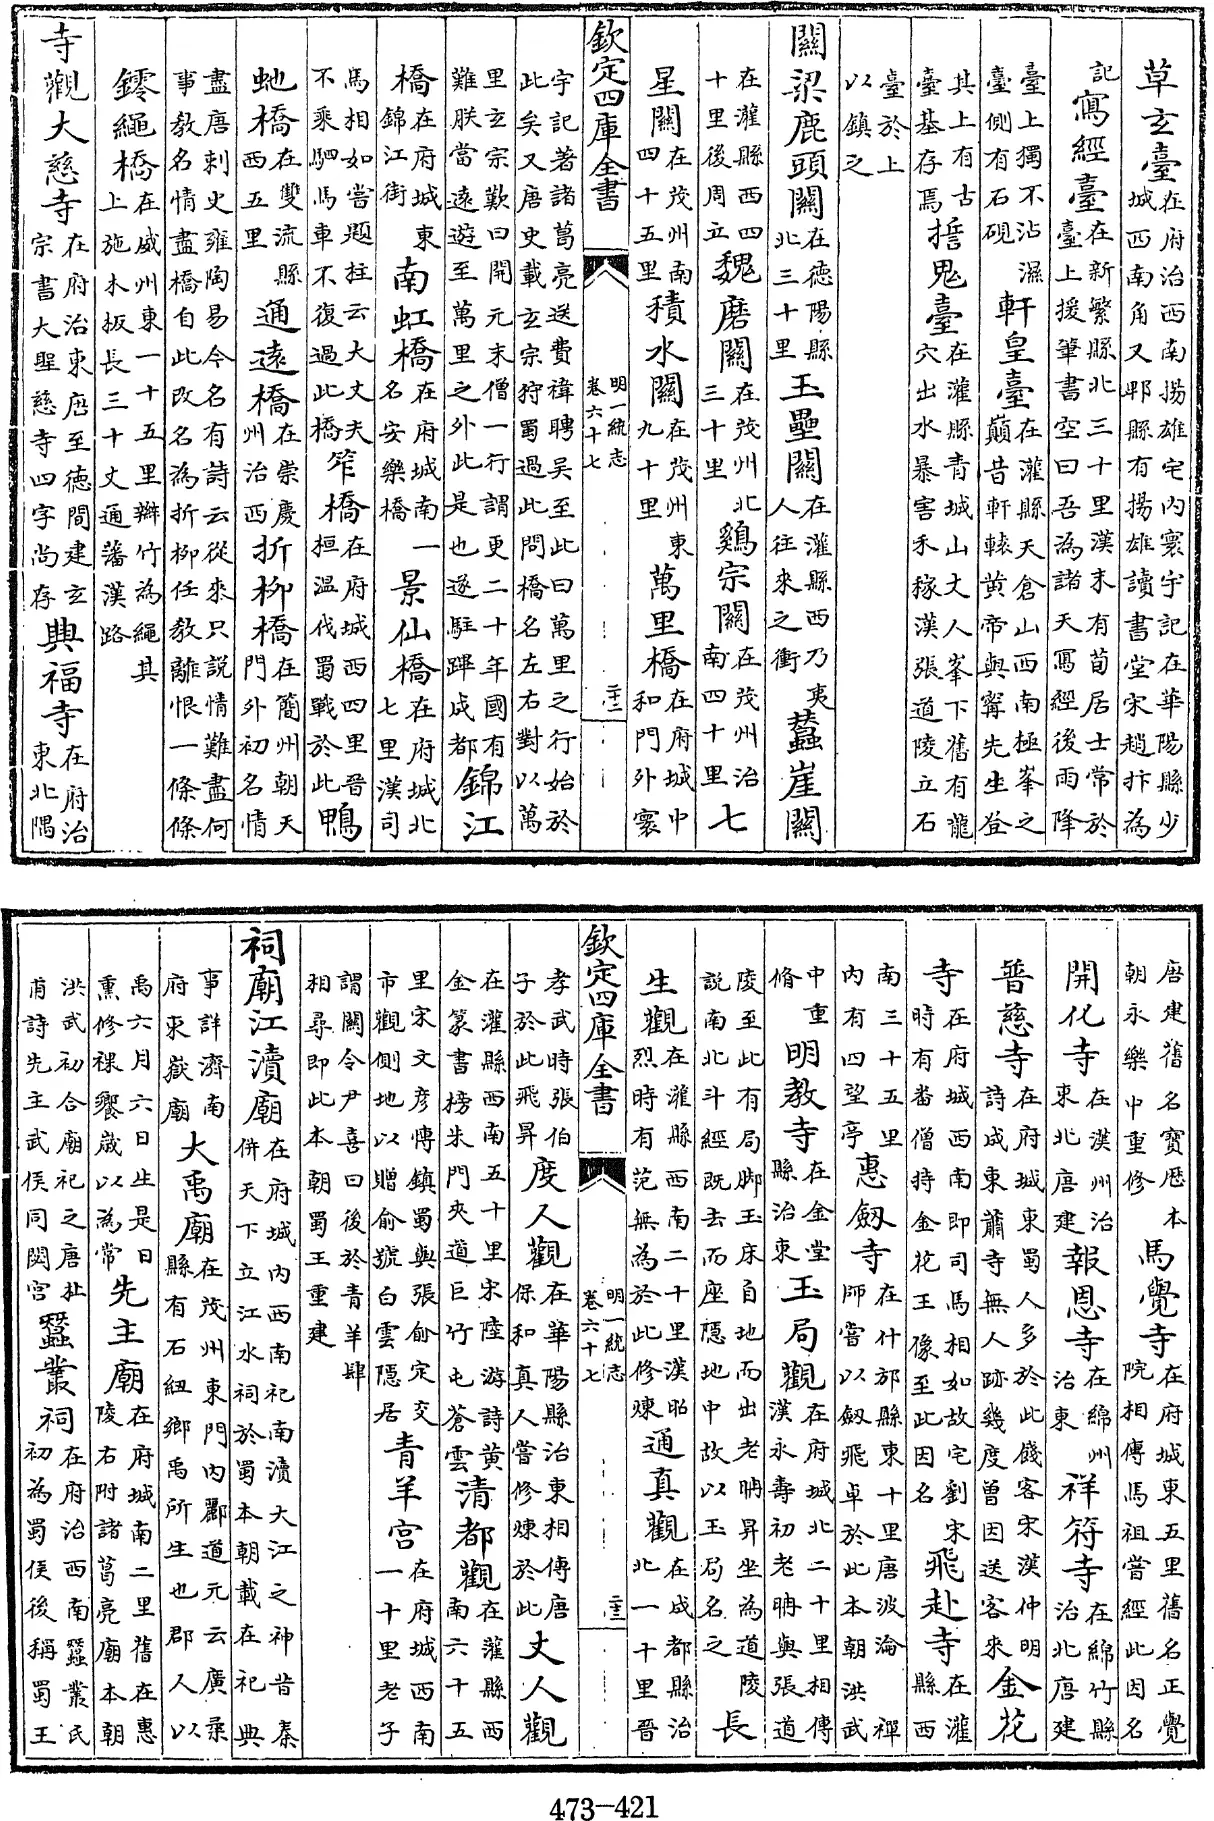 草玄臺在府治西南揚雄宅内寰宇記在華陽縣少
城西南角又郫縣有揚雄讀書堂宋趙抃為
記寫經臺在新繁縣北三十里漢末有荀居士常於
臺上援筆書空曰吾為諸天寫經後雨降
臺上獨不沾濕臺側有石硯軒皇臺在灌縣天倉山西南極峯之
巔昔軒轅黄帝與寗先生登
其上有古臺基存焉擔鬼臺在灌縣青城山丈人峯下舊有龍
穴出水暴害禾稼漢張道陵立石
臺於上
以鎮之
關梁鹿頭關在德陽縣北三十里玉壘關在灌縣西乃夷人往來之衝蠶崖關
在灌縣西四十里後周立魏磨關在茂州北三十里鷄宗關在茂州治南四十里七
星關在茂州南四十五里積水關在茂州東九十里萬里橋在府城中和門外寰
欽定四庫全書 明一統志 卷六十七 二十二
宇記著諸葛亮送費禕聘吳至此曰萬里之行始於
此矣又唐史載玄宗狩蜀過此問橋名左右對以萬
里玄宗歎曰開元末僧一行謂更二十年國有
難朕當遠遊至萬里之外此是也遂駐蹕成都錦江
橋在府城東錦江街南虹橋在府城南一名安樂橋景仙橋在府城北七里漢司
馬相如嘗題柱云大丈夫不乘駟馬車不復過此橋笮橋在府城西四里晉桓温伐蜀戰於此鴨
虵橋在雙流縣西五里通遠橋在崇慶州治西折柳橋在簡州朝天門外初名情
盡唐刺史雍陶易今名有詩云從來只説情難盡何
事教名情盡橋自此改名為折柳任教離恨一條條
繩橋在威州東一十五里辮竹為繩其
上施木板長三十丈通蕃漢路
寺觀大慈寺在府治東唐至徳間建玄宗書大聖慈寺四字尚存興福寺在府治東北隅
唐建舊名寳厯本朝永樂中重修馬覺寺在府城東五里舊名正覺院相傳馬祖嘗經此因名
開化寺在漢州治東北唐建報恩寺在綿州治東祥符寺在綿竹縣治北唐建
普慈寺在府城東蜀人多於此餞客宋漢仲明詩成東蕭寺無人跡幾度曾因送客來金花
寺在府城西南即司馬相如故宅劉宋時有畨僧持金花王像至此因名飛赴寺在灌縣西
南三十五里内有四望亭惠劔寺在什邡縣東十里唐波淪禪師嘗以劔飛卓於此本朝洪武
中重脩明教寺在金堂縣治東玉局觀在府城北二十里相傳漢永壽初老聃與張道
陵至此有局脚玉床自地而出老聃昇坐為道陵
説南北斗經既去而座隠地中故以玉局名之長
生觀在灌縣西南二十里漢昭烈時有范無為於此修煉通真觀在成都縣治北一十里晉
欽定四庫全書 明一統志 卷六十七 二十三
孝武時張伯子於此飛昇度人觀在華陽縣治東相傳唐保和真人嘗修煉於此丈人觀
在灌縣西南五十里宋陸游詩黄金篆書榜朱門夾道巨竹屯蒼雲清都觀在灌縣西南六十五
里宋文彦博鎮蜀與張俞定交市觀側地以贈俞號白雲隱居青羊宮在府城西南一十里老子
謂關令尹喜曰後於青羊肆
相尋即此本朝蜀王重建
祠廟江瀆廟在府城内西南祀南瀆大江之神昔秦
併天下立江水祠於蜀本朝載在祀典
事詳濟南府東嶽廟大禹廟在茂州東門内酈道元云廣柔縣有石紐鄉禹所生也郡人以
禹六月六日生是日熏修祼饗歲以為常先主廟在府城南二里舊在惠陵右附諸葛亮廟本朝
洪武初合廟祀之唐杜甫詩先主武侯同閟宫蠶叢祠在府治西南蠶叢氏初為蜀侯後稱蜀王
473-421